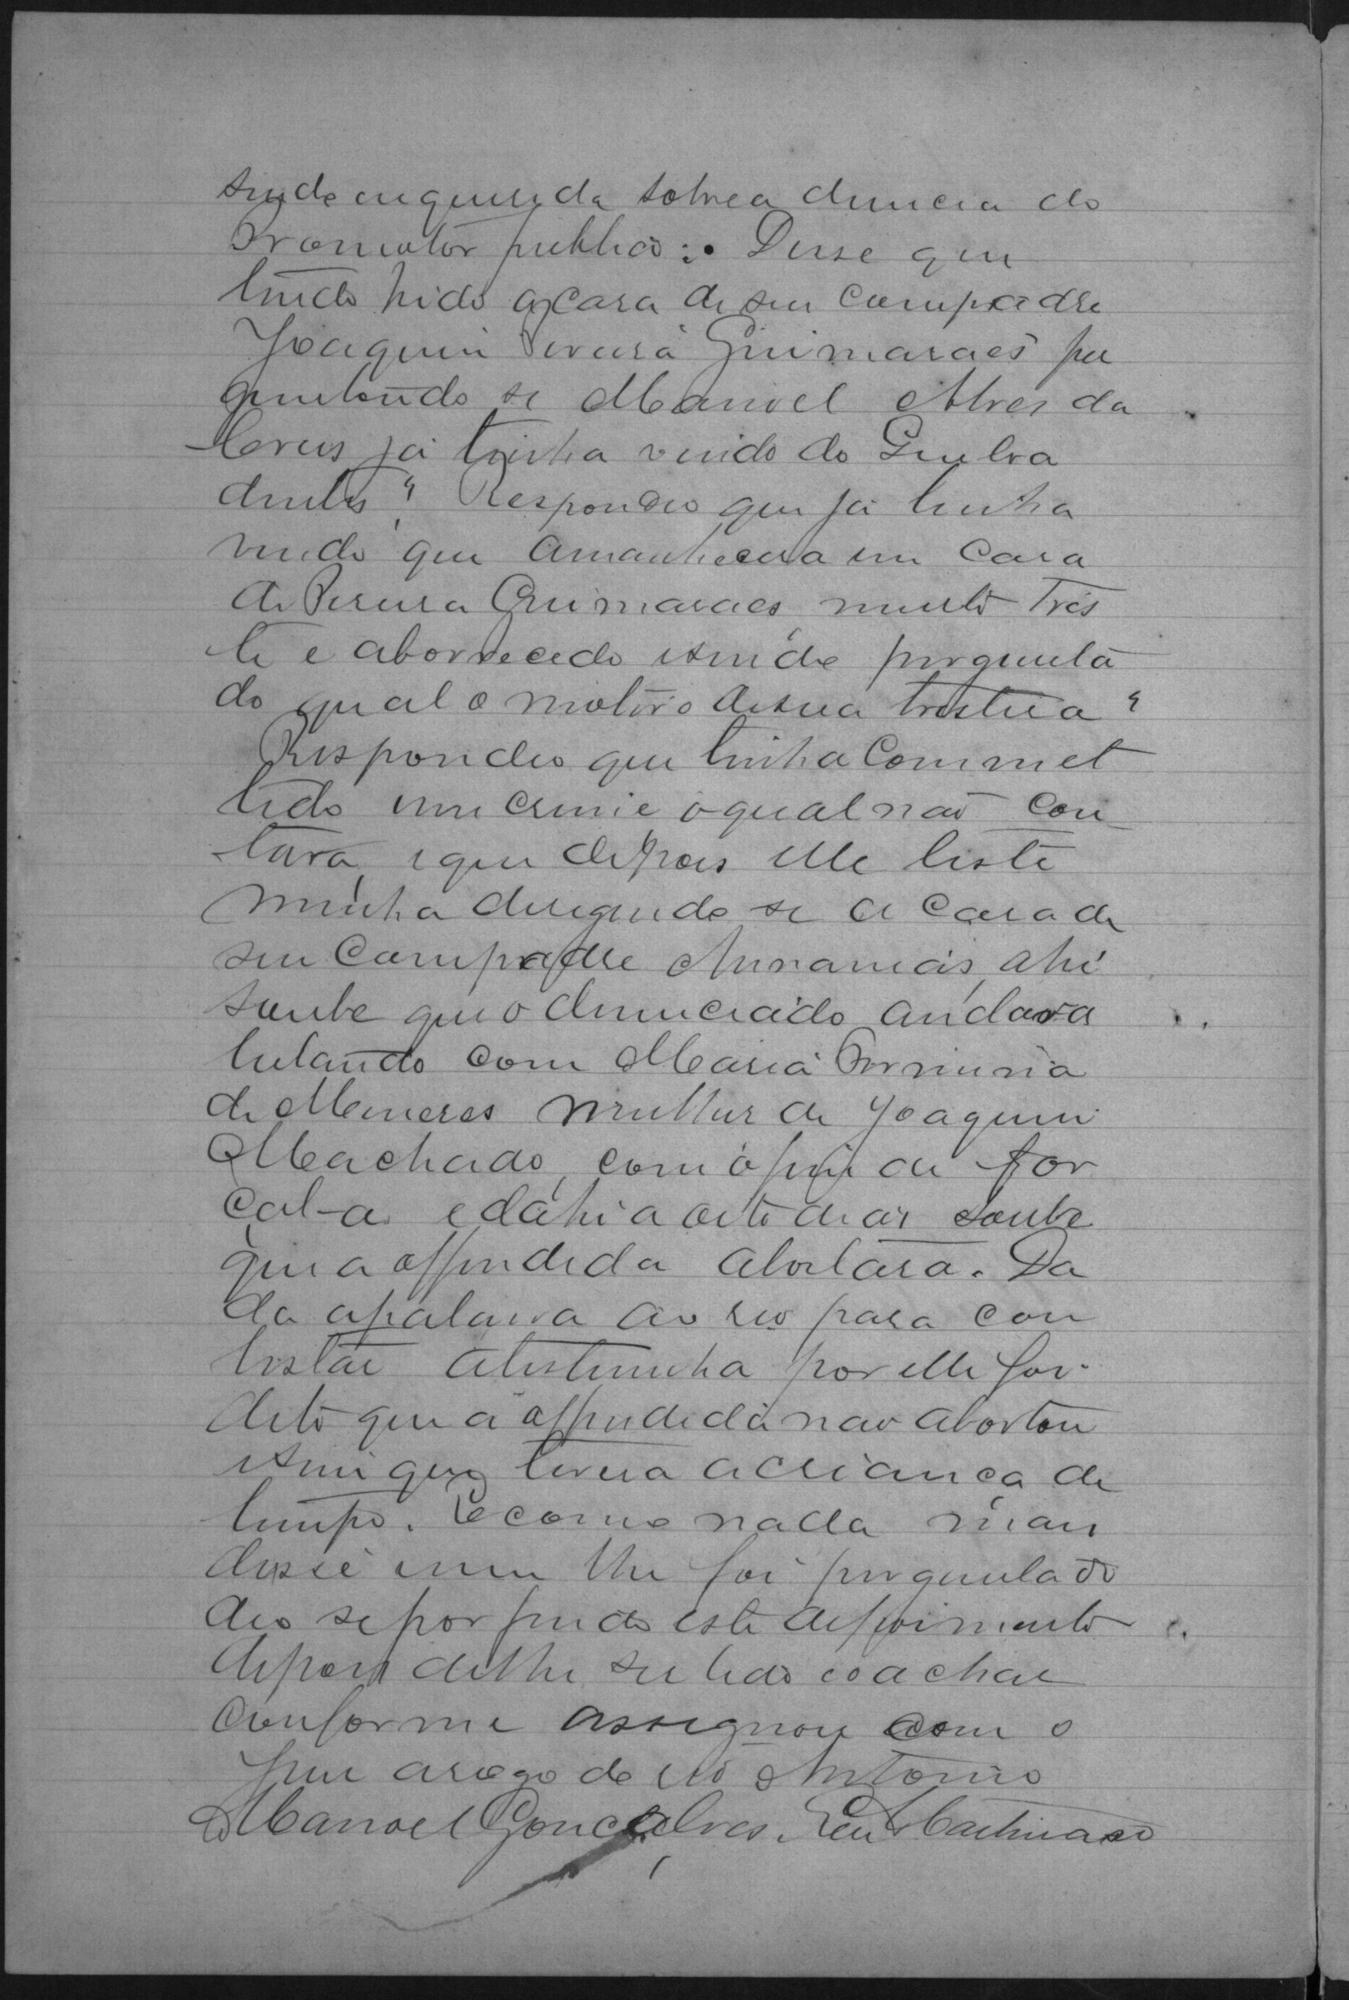 sendo enquerida sobre a denuncia do
Promotor publico:. Disse que
tendo hido a casa de seu compadre
Joaquim Pereira Guimaraẽs per
guntando se Manoel Alves da
Crus já tinha vindo do Quebra
dentes? Respondeo que já tinha
vindo que amanhecera em casa
de Pereira Guimaraes, muito tris
te e aborrecido e sendo pergunta
do qual o motivo de sua tristesa?
Respondeo que tinha Commet
tido um crime o qual não con
tara, e que depois elle teste
munha deregindo se a casa de
seu Compadre Annanias, ahi
soube que o denunciado andara
lutando com Maria Firminia
de Meneses mulher de Joaquim
Machado, com o fim de for
çal-a e dahi a oito dias soube
que a offendida abortara. Da
da a palavra ao reo para con
testar a testemunha por elle foi
dito que a offendida não abortou
e sim que tivera a criança de
tempo. E como nada mais
disse nem lhe foi perguntado
deo se por findo este depoimento
depois de lhe ser lido e o achar
conforme assegnou com o
Juis a rogo do reo Antonio
Manoel Gonçalves. Eu